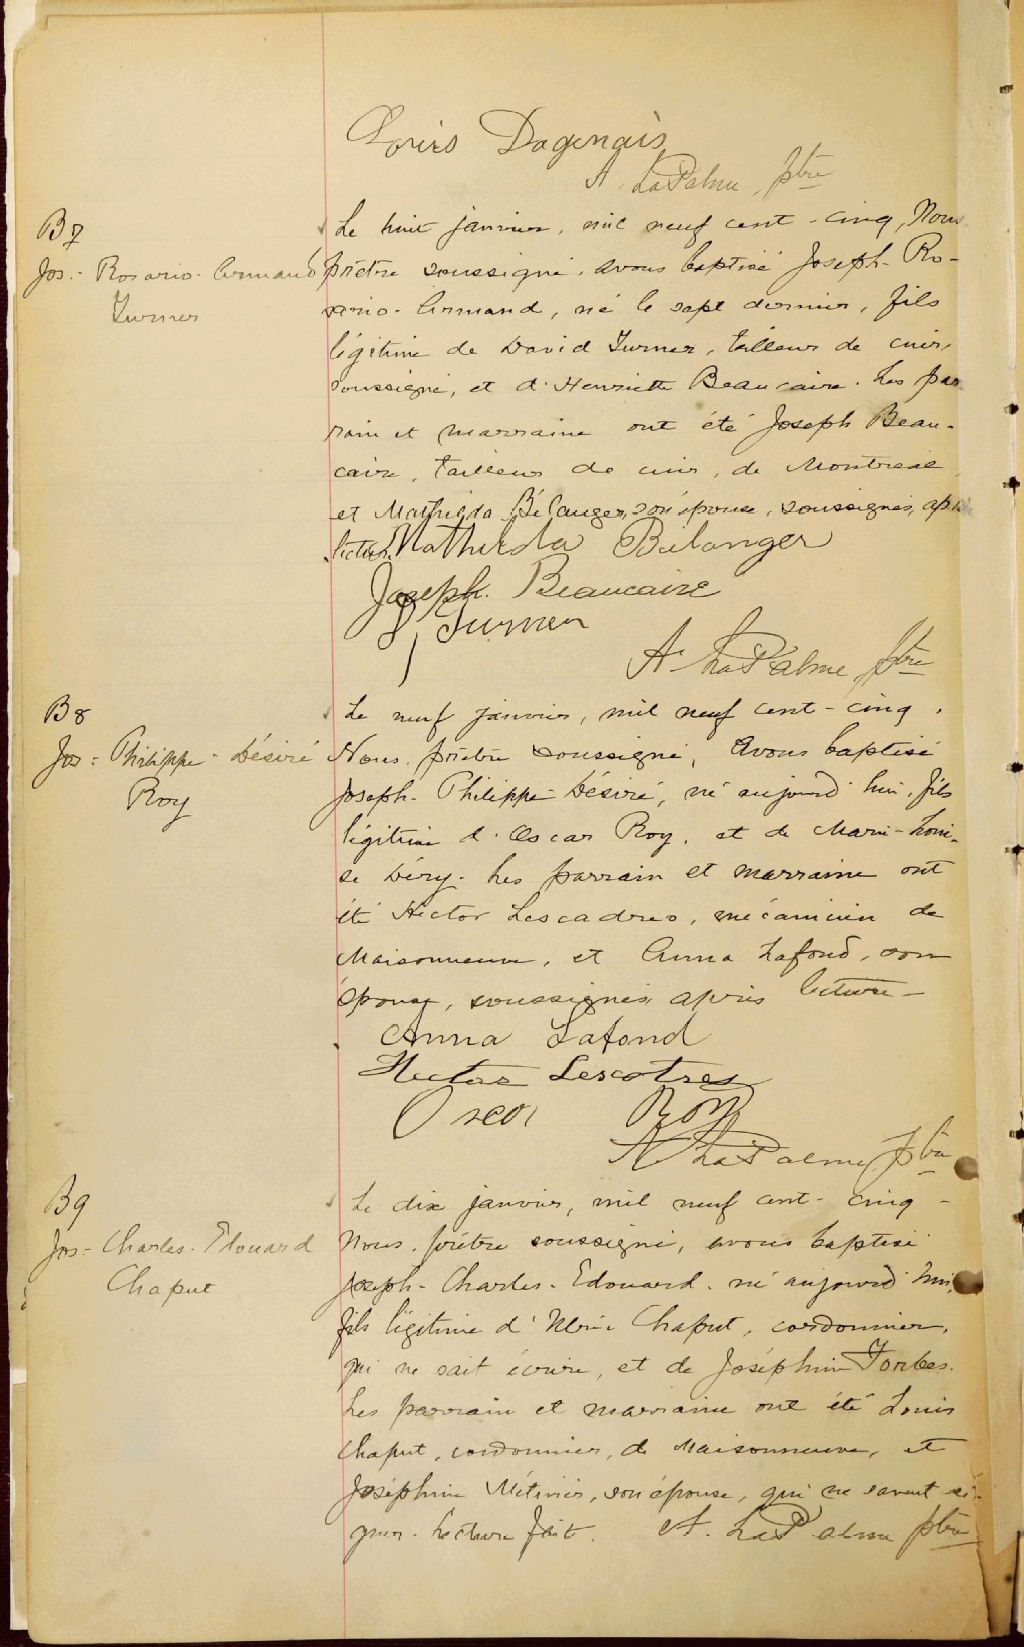 Louis Dagenais
A. LaPalme, ptre
B7
Jos.- Rosario- Armand
Turner
Le huit janvier, mil neuf cent-cinq, Nous
prêtre soussigné, avons baptisé Joseph- Ro-
sario- Armand, né le sept dernier, fils
légitime de David Turner, tailleur de cuir,
soussigné, et d'Henriette Beaucaire. Les par
rain et marraine ont été Joseph Beau-
caire, tailleur de cuir, de Montreal
et Mathilda Bélanger, son épouse, soussignés, après
lecture.
Mathilda Bélanger
Joseph. Beaucaire
D, Turner
A. LaPalme, ptre
B8
Jos- Philippe- Désiré
Roy
Le neuf janvier, mil neuf cent-cinq,
Nous, prêtre soussigné, avons baptisé
Joseph- Philippe- Désiré, né aujourd'hui, fils
légitime d'Oscar Roy, et de Marie-Loui-
se Déry. Les parrain et marraine ont
été Hector Lescadres, mécanicien de
Maisonneuve, et Anna Lafond, son
épouse, soussignés après lecture-
Anna Lafond
Hector Lescotres
Oscar Roy
A. LaPalme, ptre
B9
Jos- Charles- Edouard
Chaput
Le dix janvier, mil neuf cent- cinq-
Nous, prêtre soussigné, avons baptisé
Joseph- Charles- Edouard, né aujourd'hui,
fils légitime d'Ulric Chaput, cordonnier,
qui ne sait écrire, et de Joséphine Forbes.
Les parrain et marraine ont été Louis
Chaput, cordonnier, de Maisonneuve, et
Joséphine Métivier, son épouse, qui ne savent si-
gner. Lecture faite. A. LaPalme ptre